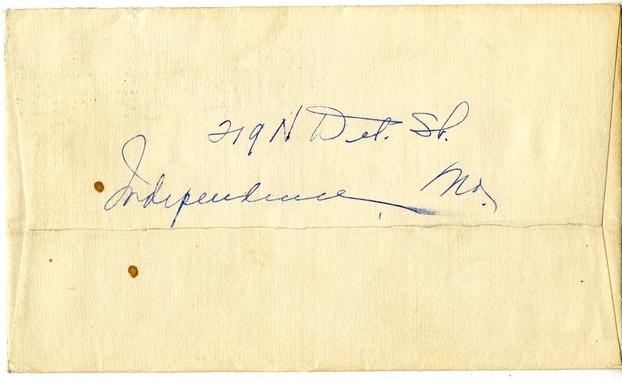 219 N Det. St.
Independence, Mo.